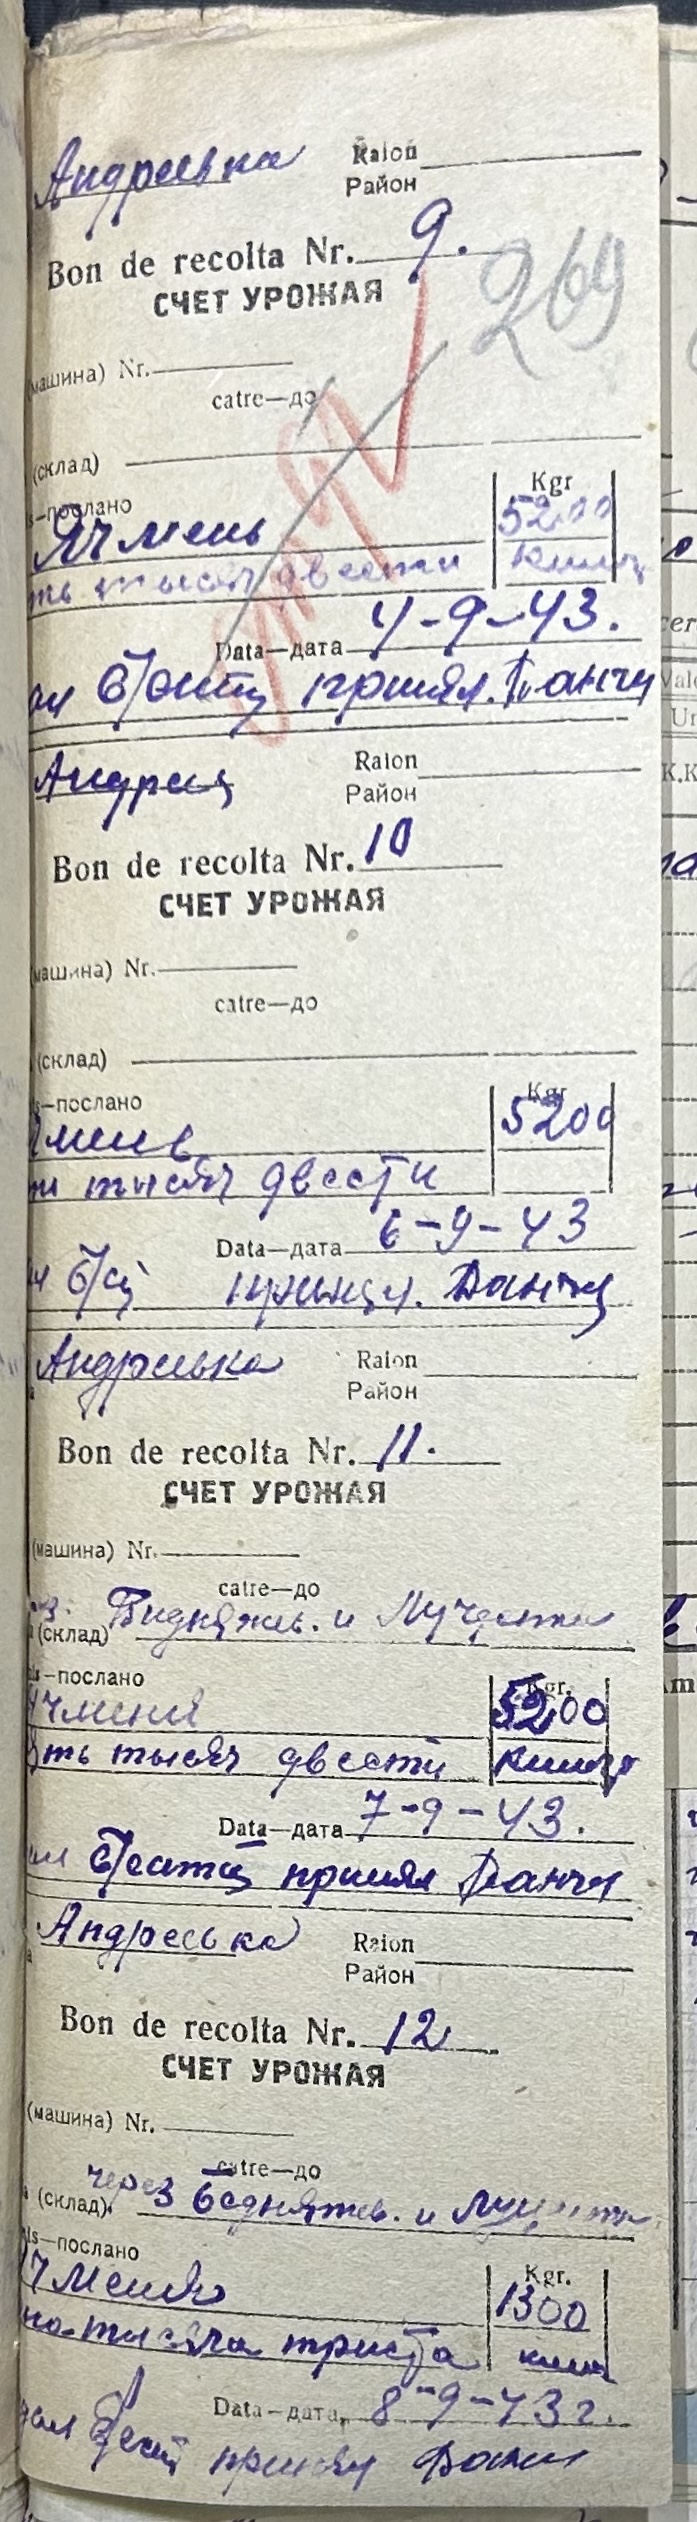 Андреевка Raion
Район
Bon de recolta Nr. 9.
269
СЧЕТ УРОЖАЯ
(машина) Nr.
catre—до
(склад)
Kgr
s—послано
Ячмень 5200
ть тысяч двести килогр
Data—дата 4-9-43.
принял.
Raion
Район
Bon de recolta Nr. 10
СЧЕТ УРОЖАЯ
(машина) Nr.
catre—до
(склад)
Kgr
s—послано
чмень 5200
тысяч двести
Data—дата 6-9-43
Андреевка Raion
Район
Bon de recolta Nr. 11.
СЧЕТ УРОЖАЯ
(машина) Nr.
catre—до
и
(склад)
Kgr.
ls—послано
чменя 5200
ять тысяч двести
Data—дата 7-9-43.
принял
Андреевка Raion
Район
Bon de recolta Nr. 12
СЧЕТ УРОЖАЯ
(машина) Nr.
catre—до
через и
(склад)
ls—послано
Kgr.
чменя 1300
на тысяча триста
Data—дата, 8-9-43г.
принял